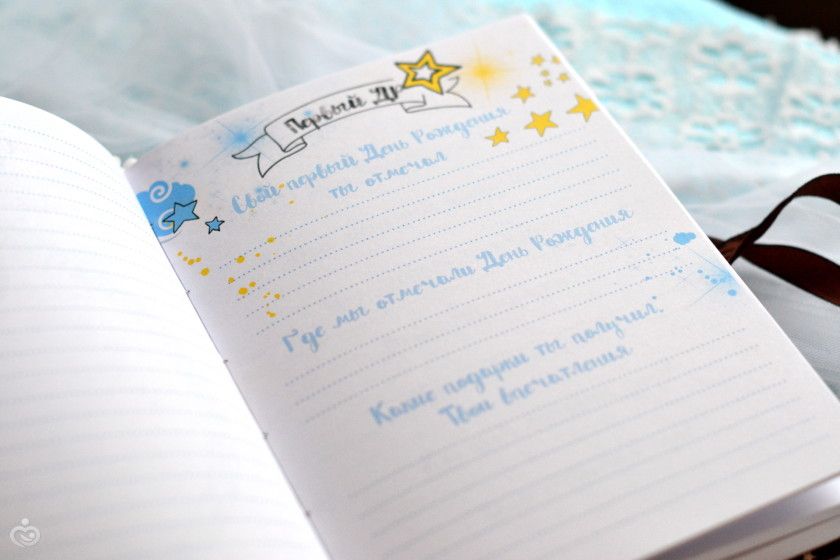 Первый ДР
Свой первый День Рождения
ты отмечал
Где мы отмечали День Рождения
Какие подарки ты получил?
Твои впечатления